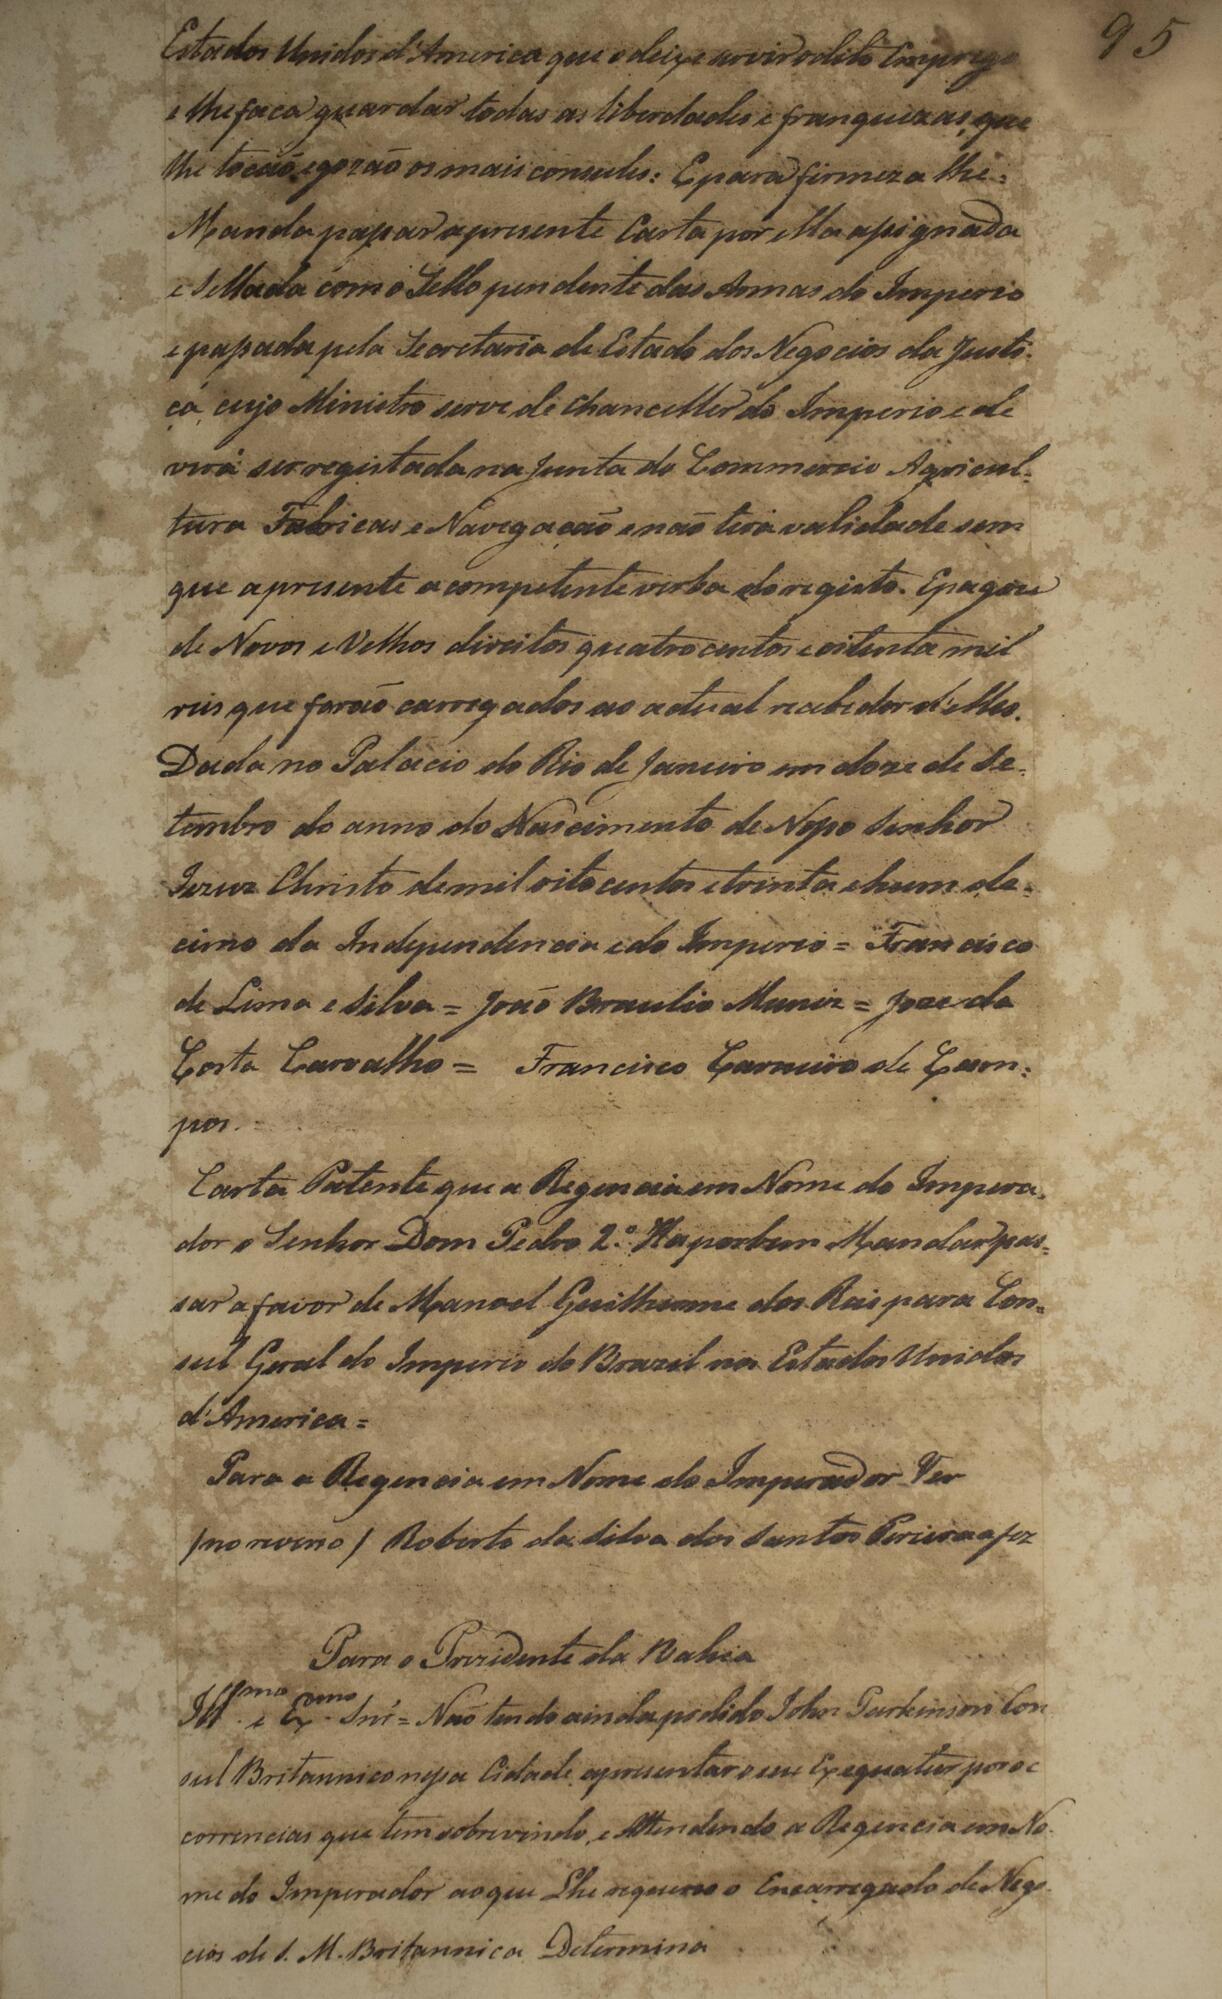 95
Estados Unidos d'America que o deixe servir o dito Emprego
e lhe faça guardar todas as liberdades e franquezas, que
lhe tocão, e gozão os mais consules: E para firmeza lhe-
Manda passar a presente Carta por ella assignada
e Sellada com o Sello pendente das Armas do Imperio
e passada pela Secretaria de Estado dos Negocios da Justi-
ça, cujo Ministro serve de Chanceller do Imperio e de
verá ser registada na Junta do Commercio Agricul-
tura Fabricas e Navegação e não terá validade sem
que apresente a competente verba do registo. E pagou
de Novos e Velhos direitos quatro centos e oitenta mil
reis que forão carregados ao actual recebedor d'elles.
Dada no Palacio do Rio de Janeiro em doze de Se-
tembro do anno do Nascimento de Nosso Senhor
Jezus Christo de mil oito centos e trinta e hum de-
cimo da Independencia e do Imperio = Francisco
de Lima e Silva = João Braulio Muniz = Joze da
Costa Carvalho = Francisco Carneiro de Cam-
pos.
Carta Patente que a Regencia em Nome do Impera-
dor o Senhor Dom Pedro 2.º Ha por bem Mandar pas-
sar a favor de Manoel Guilherme dos Reis para Con-
sul Geral do Imperio do Brazil nos Estados Unidos
d'America =
Para a Regencia em Nome do Imperador Ver
/no reverso/ Roberto da Silva dos Santos Pereira a fez
Para o Prezidente da Bahia
Illmo e Exmo Snr = Não tendo ainda podido John Parkinson Con
sul Britannico nessa Cidade, apresentar o seu Exequatur por oc
correncias que tem sobrevindo, e Attendendo a Regencia em No-
me do Imperador ao que Lhe requereo o Encarregado de Nego-
cios de S. M. Britannica Determina